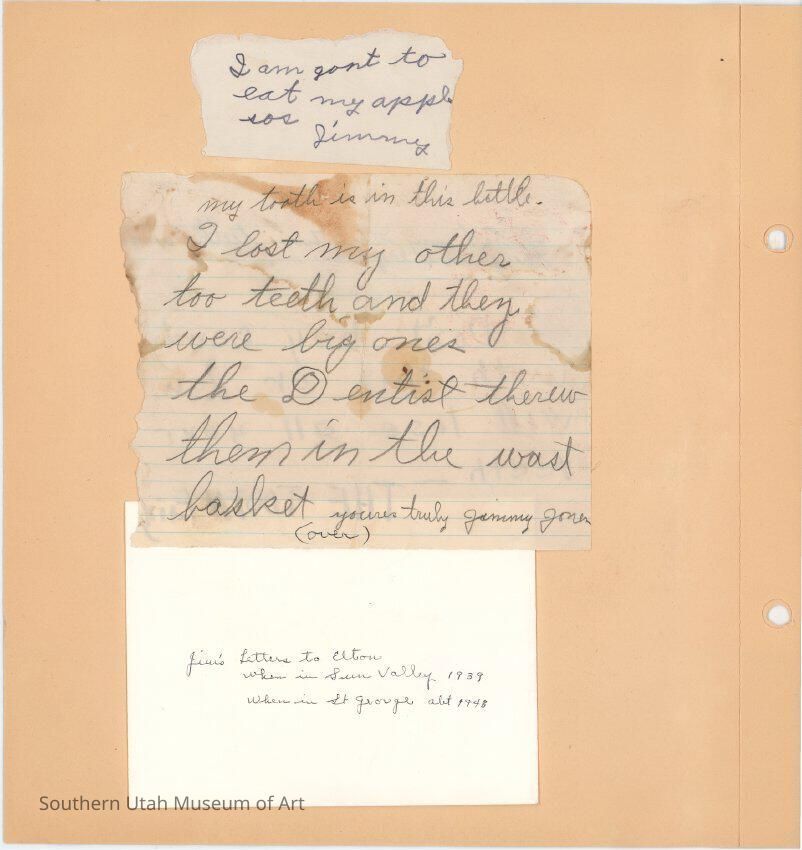 I am gont to
eat my appl
sos Jimmy
my tooth is in this bottle.
I lost my other
too teeth and they
were big ones
the Dentist therew
them in the wast
basket youres truly Jimmy Jones
(over)
Jim's Letters to Elton
when in Sun Valley 1939
When in St George abt 1948
Southern Utah Museum of Art